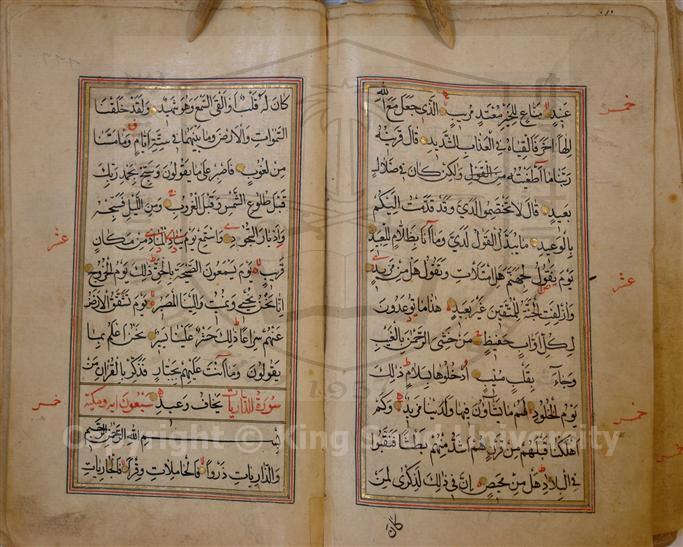 عنيد مناع للخير معتد مريب الذي جعل مع الله
الها اخر فالقياه في العذاب الشديد قال قرينه
ربنا ما اطغيته ولكن كان في ضلال
بعيد قال لا تختصموا لدي وقد قدمت اليكم
بالوعيد ما يبدل القول لدي وما انا بظلام للعبيد
يوم يقول لجهنم هل امتلات وتقول هل من مزيد
وازلفت الجنة للمتقين غير بعيد هذا ما توعدون
لكل اواب حفيظ من خشي الرحمن بالغيب
وجاء بقلب منيب ادخلوها بسلام ذلك
يوم الخلود لهم ما يشاؤن فيها ولدينا مزيد وكم
اهلكنا قبلهم من قرن هم اشد منهم بطشا فنقبوا
في البلاد هل من محيص ان في ذلك لذكرى لمن
كان
خمس
عشر
خمس
كان له قلب او القى السمع وهو شهيد ولقد خلقنا
السموات والارض وما بينهما في ستة ايام وما مسنا
من لغوب فاصبر على ما يقولون وسبح بحمد ربك
قبل طلوع الشمس وقبل الغروب ومن الليل فسبحه
وادبار السجود واستمع يوم يناد المناد من مكان
قريب يوم يسمعون الصيحة بالحق ذلك يوم الخروج
انا نحن نحيي ونميت والينا المصير يوم تشقق الارض
عنهم سراعا ذلك حشر علينا يسير نحن اعلم بما
يقولون وما انت عليهم بجبار فذكر بالقران من
سورة الذاريات يخاف وعيد ستون اية مكية
بسم الله الرحمن الرحيم
والذاريات ذروا فالحاملات وقرا فالجاريات
عشر
خمس
1957
Copyright © King Saud University